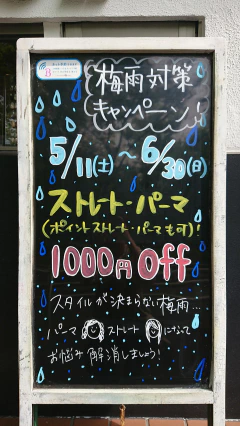 梅雨対策
キャンペーン!
5/11(土)~6/30(日)
ストレート・パーマ
(ポイントストレート・パーマも可)!
1000円 Off
スタイルが決まらない梅雨...
パーマ ストレート になって
お悩み解消しましょう!